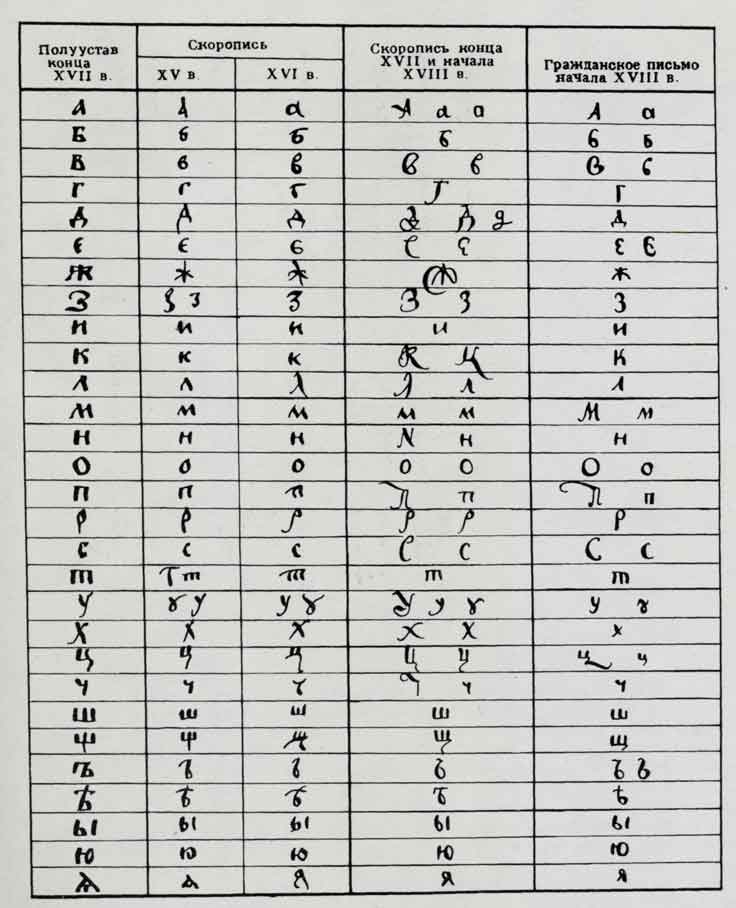 Полуустав конца XVII в. Скоропись Скоропись конца XVII и начала XVIII в. Гражданское письмо начала XVIII в.
XV в. XVI в.
А А а А а а А а
Б б Б б б б
В в в в в в в
Г г г Г Г
Д Д д Д Д д д
є є є є є є Є
Ж ж ж Ж ж
З ѯ з З З З З
и и и и и
К к к К к К
л л л л л л
м м м м м М м
н н н N н н
О о о о о О о
п п п П п П п
р р р р р р
с с с С с С с
т Т т т т т
У ɣ у у ɣ У у ɣ у ɣ
Х х х х х х
ц ц ц ц ц ц ц
ч ч ч ч ч ч
ш ш ш ш ш
щ щ щ щ щ
ъ ъ ъ ъ ъ ъ
ѣ ѣ ѣ ѣ ѣ
ы ы ы ы ы
ю ю ю ю ю
Ѧ ѧ Я я я